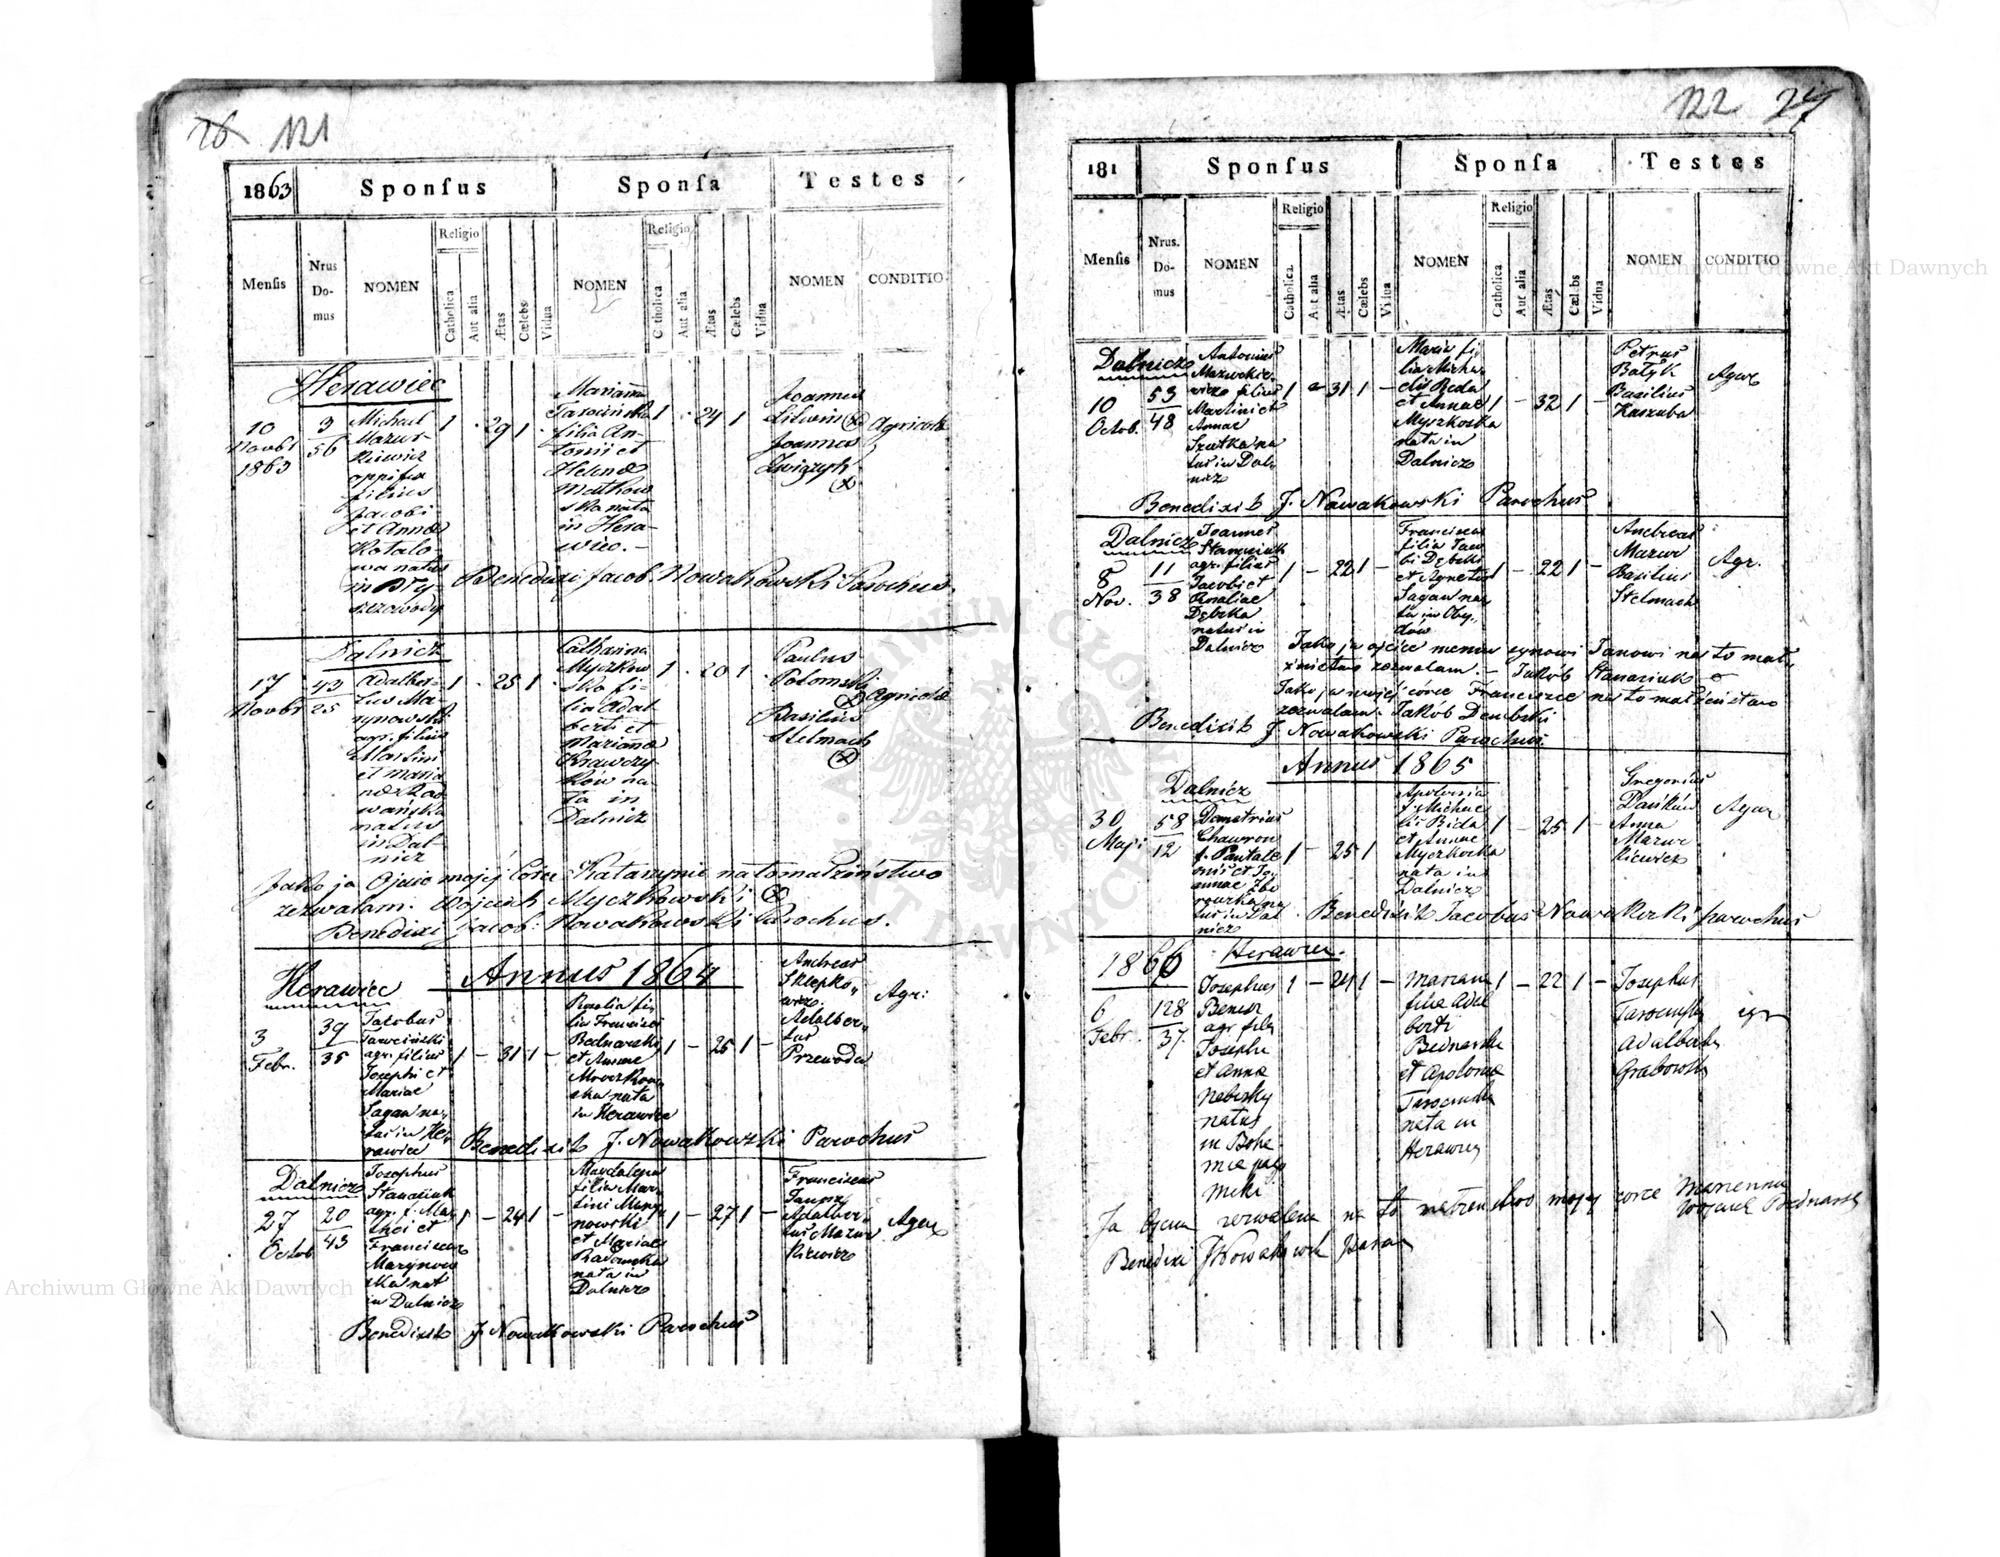 26 121
1863 Sponſus Sponſa Testes
Menſis Nrus Do- mus NOMEN Religio Catholica Aut alia Ætas Cœlebs Vidua NOMEN Religio Catholica Aut alia Ætas Cœlebs Vidua NOMEN CONDITIO
Herawiec
10
Novbr
1863
3
56
Michael
Mazur-
kiewicz
filius
Jacobi
et Annæ
natus
in
1 29 1
Marianna
Tarocińska
filia An-
tonii et
Helenæ
Matkow
ska nata
in Hera-
wiec.
1 24 1
Joannes
Litwin
Joannes
Agricolæ
Benedixi Jacob. Nowakowski Parochus.
Dalnicz
17
Novbr
43
25
Adalber-
tus Ma-
rynowski
agr. filius
Martini
et Maria
natus
in Dal-
nicz
1 25 1
Catharina
Myczkow
ska fi-
lia Adal
berti et
Mariannæ
Krawczy
ków na
ta in
Dalnicz
1 20 1
Paulus
Polomski
Basilius
Stelmach
Agricolæ
Jako ja Ojciec mojéj Córce Katarzynie na to małżeństwo
zezwalam. Wojciech Myczkowski
Benedixi Jacob: Nowakowski Parochus.
Annus 1864
Herawiec
3
Febr.
39
35
Jacobus
Tarociński
agr. filius
Josephi et
Mariae
Sagan na-
tus in He-
rawiec
1 – 31 1 –
Rosalia fi-
lia Francisci
Bednarski
et Annae
Mroczkow
ska nata
in Herawiec
1 – 25 1 –
Andreas
Sklepko-
wicz.
Adalber-
tus
Przewoda
Agr:
Benedixit J. Nowakowski Parochus
Dalnicz
27
Octob
20
43
Josephus
Stanasiuk
agr. f. Mat
thei et
Franciscae
Marynow
ska nat
in Dalnicz
1 – 24 1 –
Magdalena
filia Mar-
tini Mary
nowski
et Mariae
Radomska
nata in
Dalnicz
1 – 27 1 –
Franciscus
Adalber-
tus Mazur
kiewicz
Agr
Benedixit J. Nowakowski Parochus
122 27
181 Sponſus Sponſa Testes
Menſis Nrus. Do- mus NOMEN Religio Catholica Aut alia Ætas Cœlebs Vidua NOMEN Religio Catholica Aut alia Ætas Cœlebs Vidua NOMEN CONDITIO
Dalnicz
10
Octob.
53
48
Antonius
Mazurkie-
wicz filius
Martini et
Annae
Szutka na
tus in Dal-
nicz
1 – 31 1 –
Maria fi-
lia Micha-
elis Beda
et Annae
Myszkoska
nata in
Dalnicz
1 – 32 1 –
Petrus
Batyk
Basilius
Kaszuba
Agr
Benedixit J. Nowakowski Parochus
Dalnicz
8
Nov.
11
38
Joannes
Stanasiuk
agr. filius
Jacobi et
Rosaliae
Dębska
natus in
Dalnicz
1 – 22 1 –
Francisca
filia Jaco
bi Dębski
et Agnetis
Sagan na
ta in Oby-
dów
1 – 22 1 –
Andreas
Mazur
Basilius
Stelmach
Agr.
Jako ja ojciec memu synowi Janowi na to mał-
żeństwo zezwalam. – Jakób Stanasiuk
Jako ja mojéj córce Franciszce na to małżeństwo
zezwalam. Jakób Dembski
Benedixit J. Nowakowski Parochus.
Annus 1865
Dalnicz
30
Maji
58
12
Demetrius
Chawron
f. Pantale
onis et Jo-
annae Zbo
rowska na
tus in Dal
nicz
1 – 25 1
Apolonia
f. Michae
lis Bida
et Annae
Myczkoska
nata in
Dalnicz
1 – 25 1 –
Gregorius
Daśków
Anna
Mazur
kiewicz
Agr
Benedixit Jacobus Nowakoski parochus
1866 Herawiec.
6
Febr.
128
37.
Josephus
agr filiu
Josephi
et Anna
natus
in Bohe
mia
1 – 24 1 –
Mariana
filia Adal
berti
Bednarski
et Apolonia
Tarocinska
nata in
Herawiec
1 – 22 1 –
Josephus
Tarocinski
Adalbertus
Grabowski
agr
Ja Ojciec zezwalam na to małżeństwo mojej corce Marianna
Wojciech Bednarski
Benedixi J Nowakowski paroch
Archiwum Główne Akt Dawnych
Archiwum Główne Akt Dawnych
ARCHIWUM GŁÓWNE AKT DAWNYCH